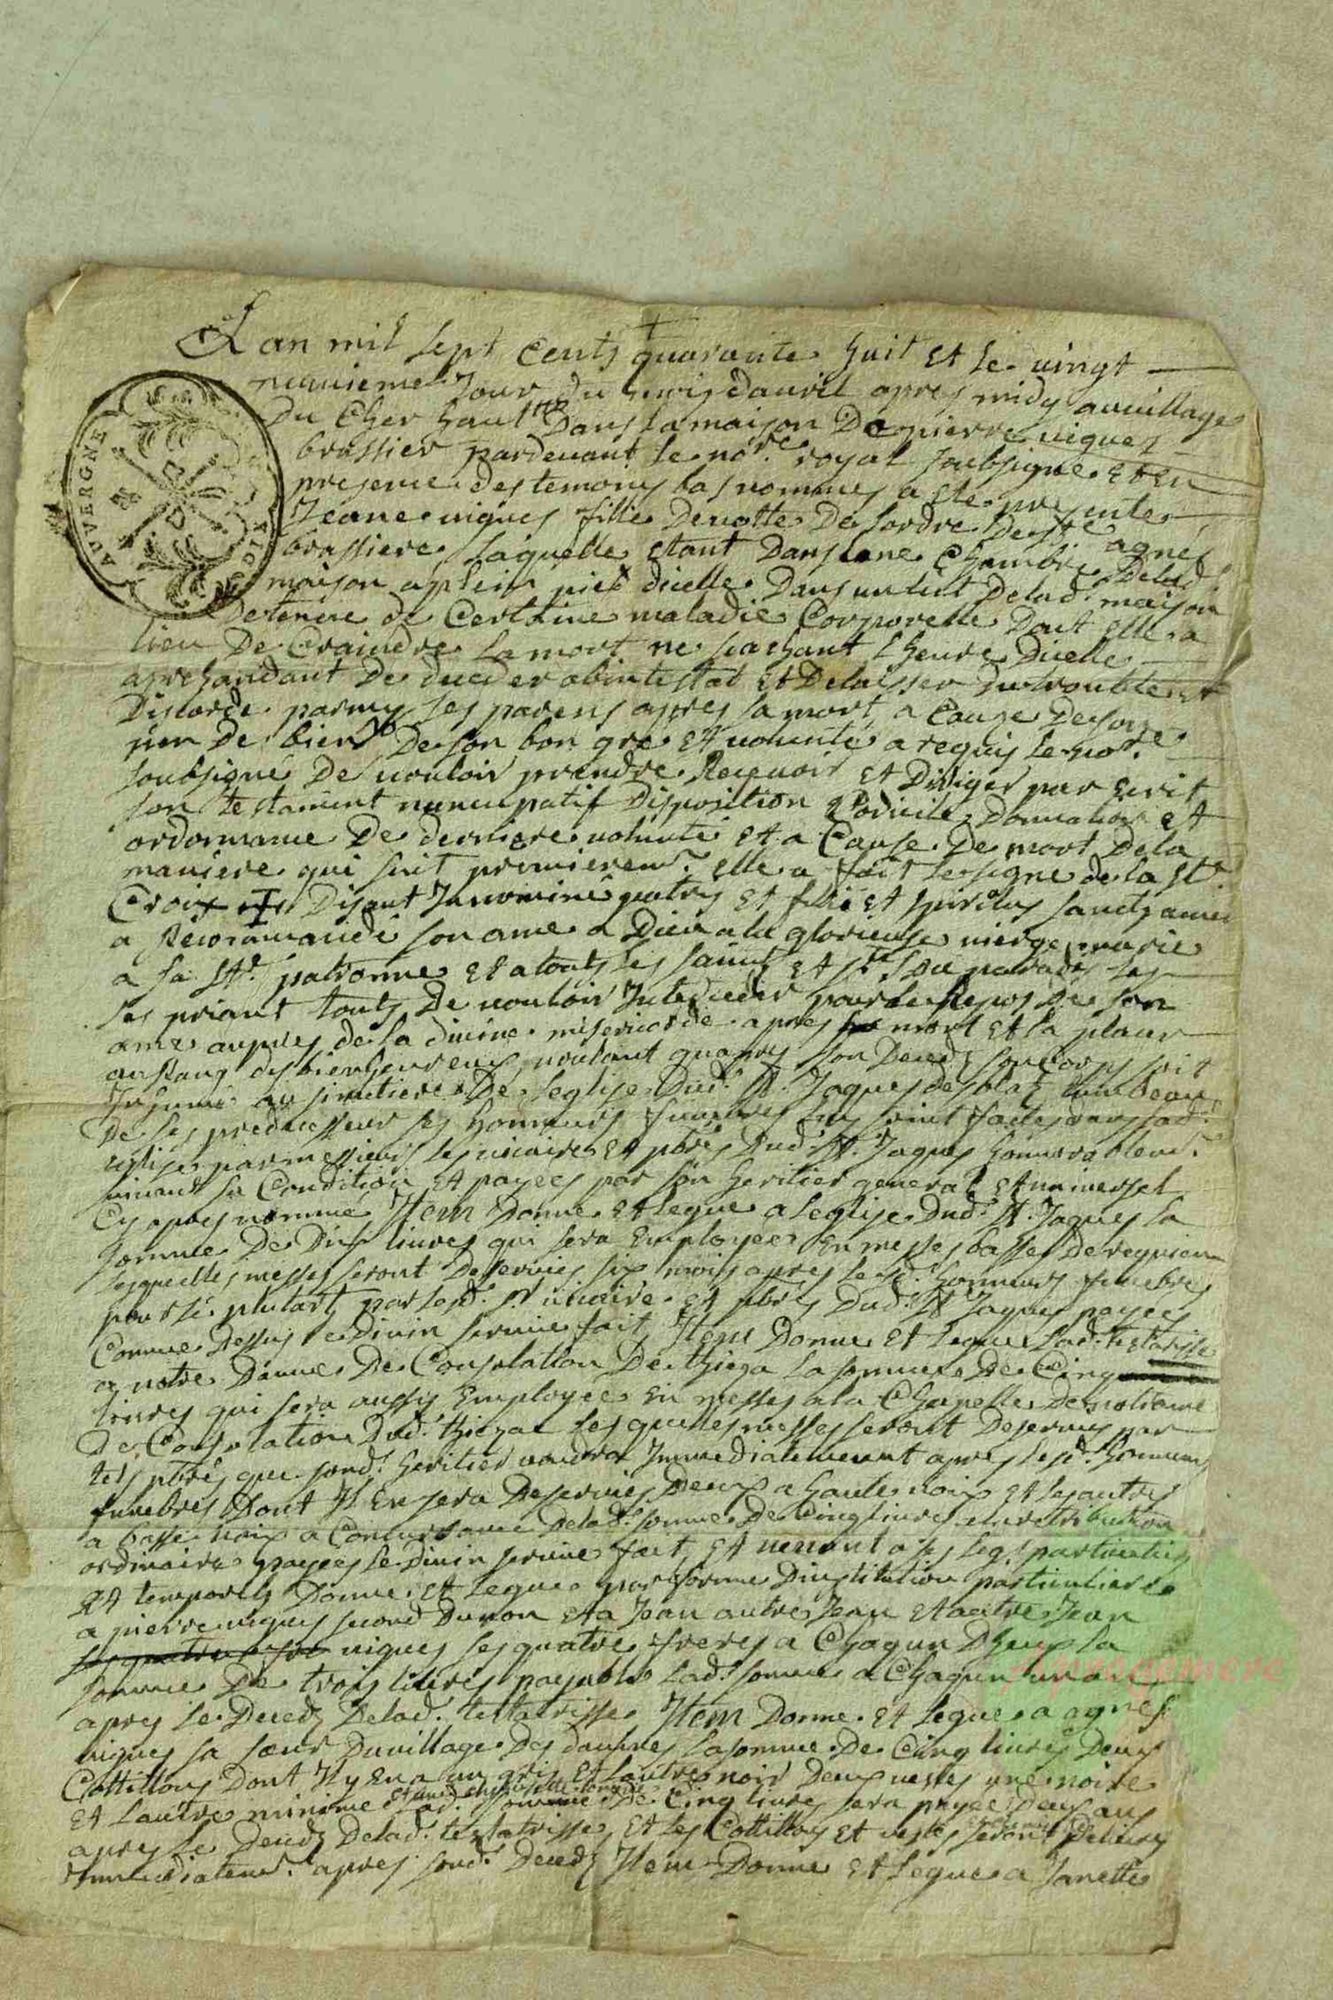 Lan mil sept cents quarante huit et le vingt
neuvieme Jour du mois davril apres midy au village
du Cher haut Dans la maison De pierre vigues
brassier pardevant le nore royal soubsigne et en
presence des temoins bas nommes a ete presente
Jeane vigues fille Devotte De lordre De Ste agnes
brassiere laquelle etant Dans une Chambre Delad.
maison a plein pied dicelle Dans un lit Delad. maison
Detenue de Certaine maladie Corporelle Dont elle a
lieu De Craindre la mort ne sachant lheure Dicelle
aprehandant De deceder abintestat et Delaisser du trouble et
Discorde parmy ses parens apres sa mort a Cause De son
peu De bien De son bon gre et volonté a requis le nore
soubsigné De vouloir prendre Recevoir et Diriger par ecrit
son testament nuncupatif disposition Codicile Donnation et
ordonnance De derniere volonté et a Cause De mort De la
maniere qui suit premierem.t elle a fait le signe de la Ste
Croix Disant In nomine patris et filii et spiritus sancti amen
a Recommandé son ame a Dieu a la glorieuse vierge marie
a sa Ste patronne et a touts les saints et stes Du paradis les
les priant touts De vouloir Interceder pour le Repos De son
ame aupres de la divine misericorde apres sa mort et la placer
au Rang des bienheureux voulant quapres son Deceds son Corps soit
Inhumé au simetiere De leglise Dud. St. Jaques des blats tombeau
De ses predecesseurs ses honneurs funebres luy soint faites dans lad.
eglise par messieurs les vicaires et pbres Dud. St. Jaques honnorablem.t
suivant sa Condition et payees par son heritier general et universel
Cy apres nommé Item Donne et legue a leglise Dud. St. Jaques la
somme De Dix livres qui sera Employee En messes basses De requiem
lesquelles messes seront Deservies six mois apres lesd. honneurs funebres
par lesd. Srs vicaire et pbres Dud. St Jaques payees
Comme Dessus le Divin service fait Item Donne et legue lad. testatrisse
a notre Damme De Consolation De thiezac la somme De Cinq
livres qui sera aussy Employee En messes a la Chapelle De notre dame
De Consolation Dud. thiezac lesquelles messes seront Deservies par
tels pbres que sond. heritier voudra Immediatement apres lesd. honneurs
funebres Dont Il En sera Deservies Deux a haute voix et les autres
a basse voix a Concurrance Delad. somme De Cinq livres en retribution
ordinaire payees le Divin service fait et venant a ses legs particuliers
et temporels Donne et legue par forme Dinstitution particuliere
a pierre vigues second Du nom et a Jean autre Jean et autre Jean
vigues ses quatre freres a Chaqun Dheux la
somme De trois livres payable lad. somme a Chaqun un an
apres le Deceds Delad. testatrisse Item Donne et legue a agnes
vigues sa sœur Du village Des la somme De Cinq livres Deux
Cottillons Dont Il y En a un gris et lautre noir Deux vestes une noire
et lautre minime lad. somme De Cinq livres sera payee Deux ans
apres le Deceds Delad. testatrisse et les Cottillons et vestes seront Delivrés
Immediatem.t apres sond. Deceds Item Donne et legue a Janette
AUVERGNE